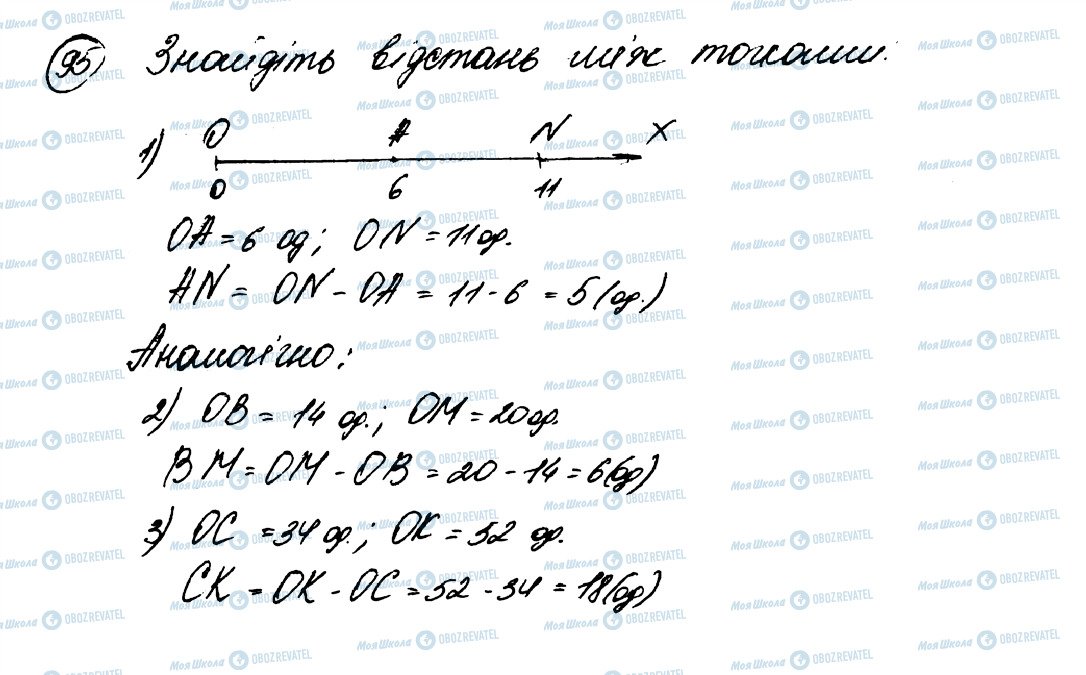 95) Знайдіть відстань між точками:
1) O A N X
0 6 11
OA = 6 од; ON = 11 од.
AN = ON - OA = 11 - 6 = 5 (од.)
Аналогічно:
2) OB = 14 од.; OM = 20 од.
BM = OM - OB = 20 - 14 = 6 (од)
3) OC = 34 од.; OK = 52 од.
CK = OK - OC = 52 - 34 = 18 (од)
Моя Школа OBOZREVATEL